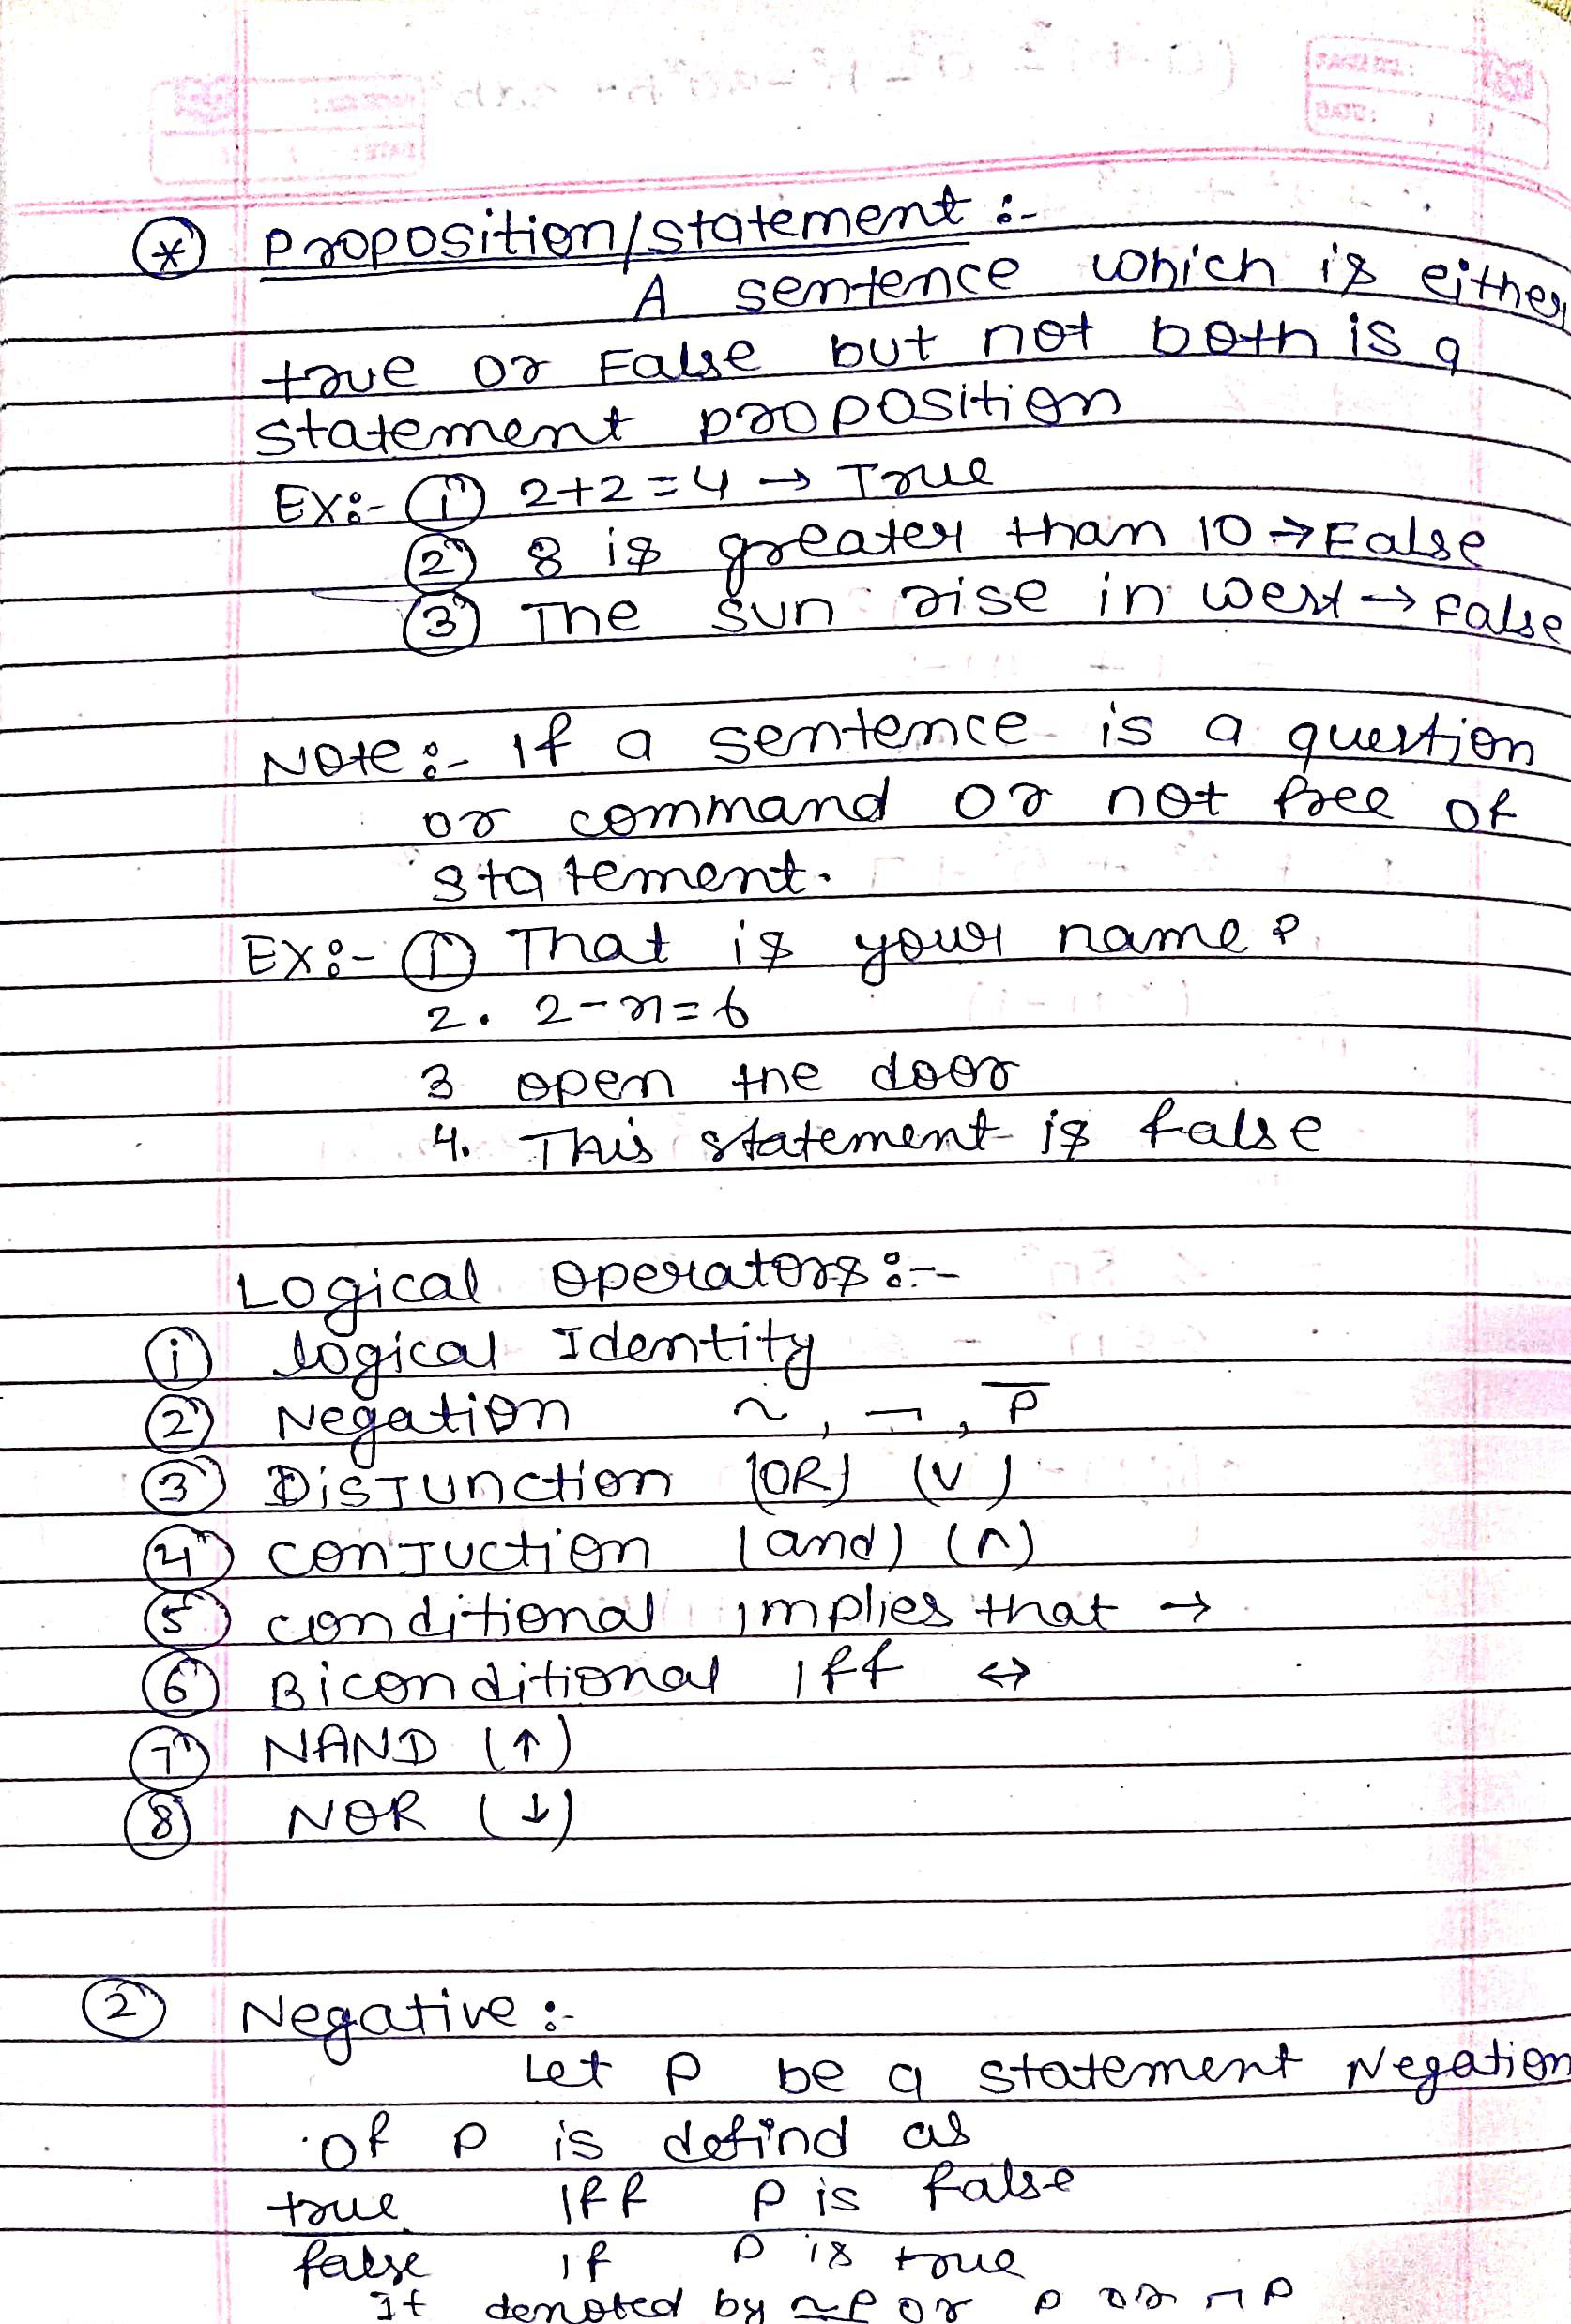 * Proposition/statement :-
A sentence which is either
true or False but not both is a
statement proposition
EX:- ① 2+2=4 → True
② 8 is greater than 10 → False
③ The sun rise in west → False
Note :- If a sentence is a question
or command or not free of
statement.
EX:- ① That is your name ?
2. 2-x=6
3 open the door
4. This statement is false
Logical operators :-
① logical Identity
② Negation ~, ¬, P̅
③ Disjunction (OR) (∨)
④ conjuction (and) (∧)
⑤ conditional implies that →
⑥ Biconditional iff ↔
⑦ NAND (↑)
⑧ NOR (↓)
② Negative :-
Let P be a statement Negation
of P is defind as
true iff P is false
false if P is true
It denoted by ~P or P or ¬P